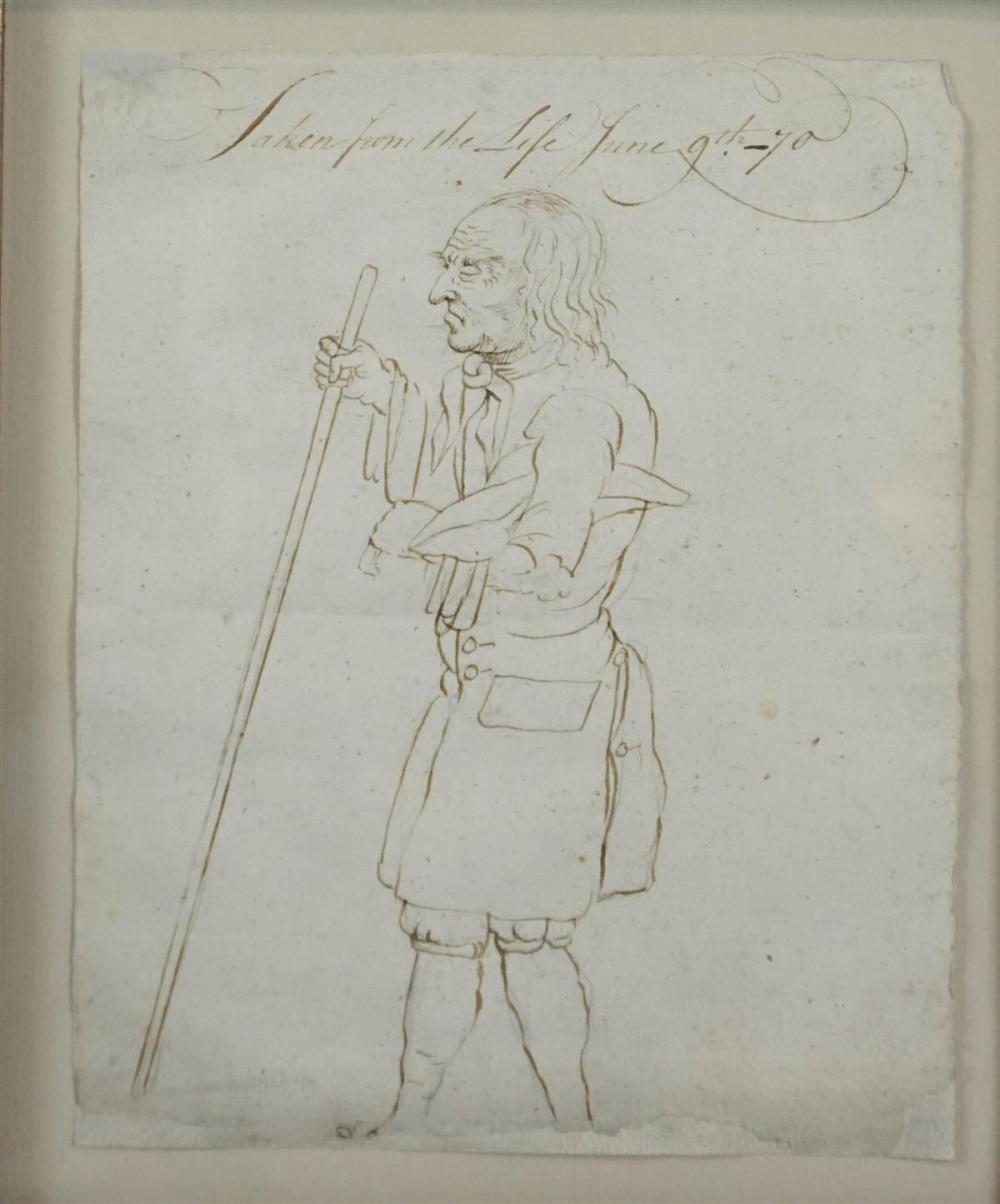 Taken from the Life June 9th - 70